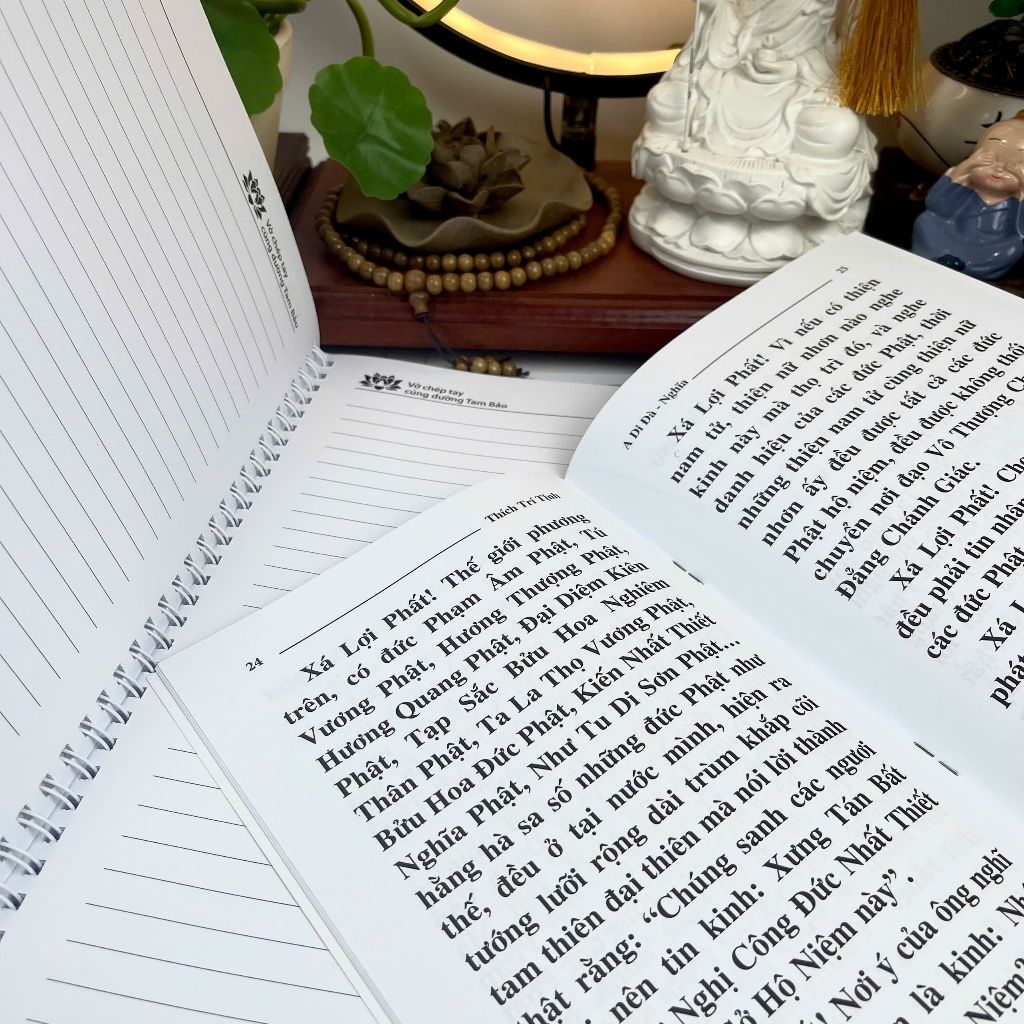 Vở chép tay
cúng dường Tam Bảo
Vở chép tay
cúng dường Tam Bảo
24
Thích Trí Tịnh
Xá Lợi Phất! Thế giới phương
trên, có đức Phạm Âm Phật, Tú
Vương Phật, Hương Thượng Phật,
Hương Quang Phật, Đại Diệm Kiên
Phật, Tạp Sắc Bửu Hoa Nghiêm
Thân Phật, Ta La Thọ Vương Phật,
Bửu Hoa Đức Phật, Kiến Nhất Thiết
Nghĩa Phật, Như Tu Di Sơn Phật...
hằng hà sa số những đức Phật như
thế, đều ở tại nước mình, hiện ra
tướng lưỡi rộng dài trùm khắp cõi
tam thiên đại thiên mà nói lời thành
thật rằng: “Chúng sanh các người
nên tin kinh: Xưng Tán Bất
Nghị Công Đức Nhất Thiết
Sở Hộ Niệm này”.
Nơi ý của ông nghĩ
là kinh:
Niệm?
A Di Đà - Nghĩa
25
Xá Lợi Phất! Vì nếu có thiện
nam tử, thiện nữ nhơn nào nghe
kinh này mà thọ trì đó, và nghe
danh hiệu của các đức Phật, thời
những thiện nam tử cùng thiện nữ
nhơn ấy đều được tất cả các đức
Phật hộ niệm, đều được không thối
chuyển nơi đạo Vô Thượng
Đẳng Chánh Giác.
Xá Lợi Phất! Cho
đều phải tin nhận
các đức Phật
Xá